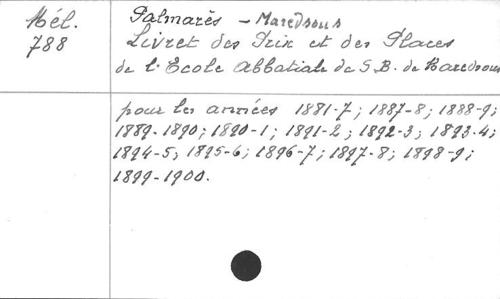 Mél.
788
Palmarès - Maredsous
Livret des Prix et des Places
de l'Ecole Abbatiale de S.B. de Maredsous
pour les années 1881-7; 1887-8; 1888-9;
1889-1890; 1890-1; 1891-2; 1892-3; 1893-4;
1894-5; 1895-6; 1896-7; 1897-8; 1898-9;
1899-1900.